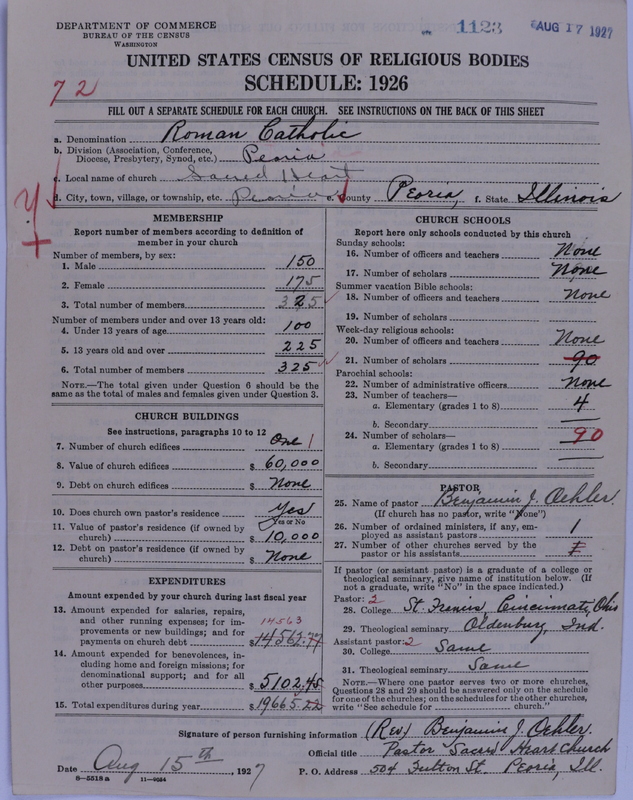 DEPARTMENT OF COMMERCE
BUREAU OF THE CENSUS
WASHINGTON
1123
AUG 17 1927
UNITED STATES CENSUS OF RELIGIOUS BODIES
SCHEDULE: 1926
72
FILL OUT A SEPARATE SCHEDULE FOR EACH CHURCH. SEE INSTRUCTIONS ON THE BACK OF THIS SHEET
a. Denomination Roman Catholic
b. Division (Association, Conference, Diocese, Presbytery, Synod, etc.) Peoria
c. Local name of church Sacred Heart
d. City, town, village, or township, etc. Peoria e. County Peoria, f. State Illinois
MEMBERSHIP
Report number of members according to definition of
member in your church
Number of members, by sex:
1. Male 150
2. Female 175
3. Total number of members 325
Number of members under and over 13 years old:
4. Under 13 years of age 100
5. 13 years old and over 225
6. Total number of members 325
NOTE.—The total given under Question 6 should be
same as the total of males and females given under Question 3.
CHURCH BUILDINGS
See instructions, paragraphs 10 to 12
7. Number of church edifices One 1
8. Value of church edifices $ 60,000
9. Debt on church edifices $ None
10. Does church own pastor's residence? Yes
Yes or No
11. Value of pastor's residence (if owned by
church) $ 10,000
12. Debt on pastor's residence (if owned by
church) $ None
EXPENDITURES
Amount expended by your church during last fiscal year
13. Amount expended for salaries, repairs,
and other running expenses; for im-
provements or new buildings; and for
payments on church debt $ 14,563.77
14563
14. Amount expended for benevolences, in-
cluding home and foreign missions; for
denominational support; and for all
other purposes $ 5102.45
15. Total expenditures during year $ 19665.22
CHURCH SCHOOLS
Report here only schools conducted by this church
Sunday schools:
16. Number of officers and teachers None
17. Number of scholars None
Summer vacation Bible schools:
18. Number of officers and teachers None
19. Number of scholars
Week-day religious schools:
20. Number of officers and teachers None
21. Number of scholars 90
Parochial schools:
22. Number of administrative officers None
23. Number of teachers—
a. Elementary (grades 1 to 8) 4
b. Secondary
24. Number of scholars—
a. Elementary (grades 1 to 8) 90
b. Secondary
PASTOR
25. Name of pastor Benjamin J. Oehler.
(If church has no pastor, write "None")
26. Number of ordained ministers, if any, em-
ployed as assistant pastors 1
27. Number of other churches served by the
pastor or his assistants
If pastor (or assistant pastor) is a graduate of a college or
theological seminary, give name of institution below. (If
not a graduate, write "No" in the space indicated.)
Pastor: 2
28. College St. Francis, Cincinnati, Ohio
29. Theological seminary Oldenburg, Ind.
Assistant pastor: 2
30. College Same
31. Theological seminary Same
NOTE.—Where one pastor serves two or more churches,
Questions 28 and 29 should be answered only on the schedule
for one of the churches; on the schedules for the other churches,
write "See schedule for church."
Signature of person furnishing information (Rev) Benjamin J. Oehler.
Official title Pastor Sacred Heart Church
Date Aug 15th, 1927 P. O. Address 504 Fulton St. Peoria, Ill.
8—5518a 11—9224